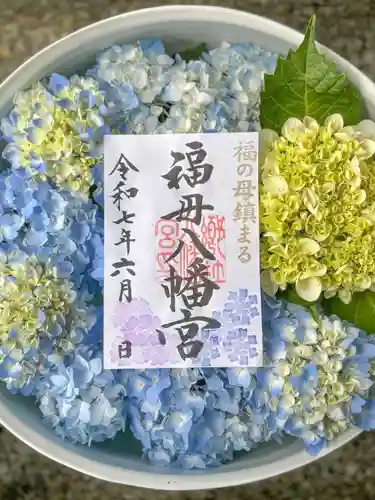 福の母鎮まる
福母八幡宮
令和七年六月 日